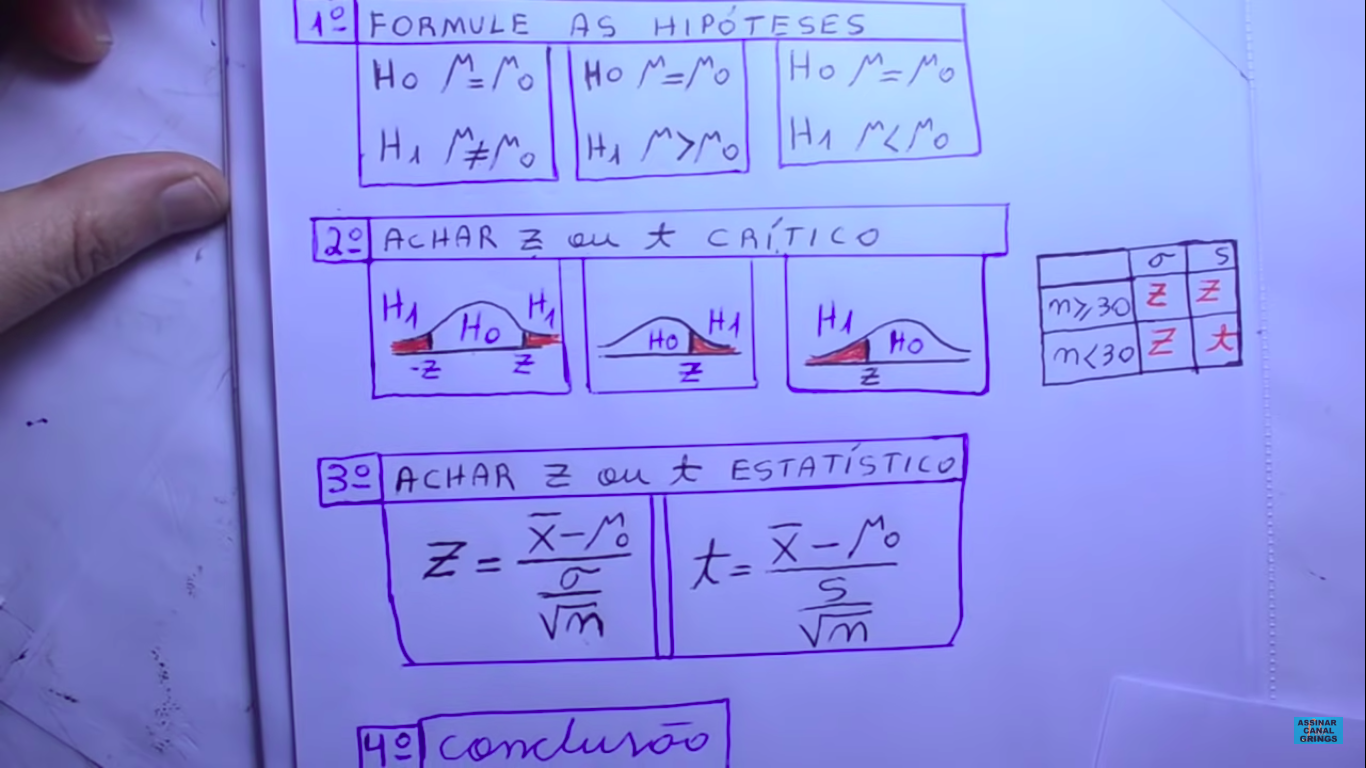 1º FORMULE AS HIPÓTESES
H0 μ=μ0
H1 μ≠μ0
H0 μ=μ0
H1 μ>μ0
H0 μ=μ0
H1 μ<μ0
2º ACHAR Z ou t CRÍTICO
H1 H0 H1
-Z Z
H0 H1
Z
H1 H0
Z
σ S
n≥30 Z Z
n<30 Z t
3º ACHAR Z ou t ESTATÍSTICO
Z = (x̄-μ0)/(σ/√n)
t = (x̄-μ0)/(S/√n)
4º conclusão
ASSINAR
CANAL
GRINGS